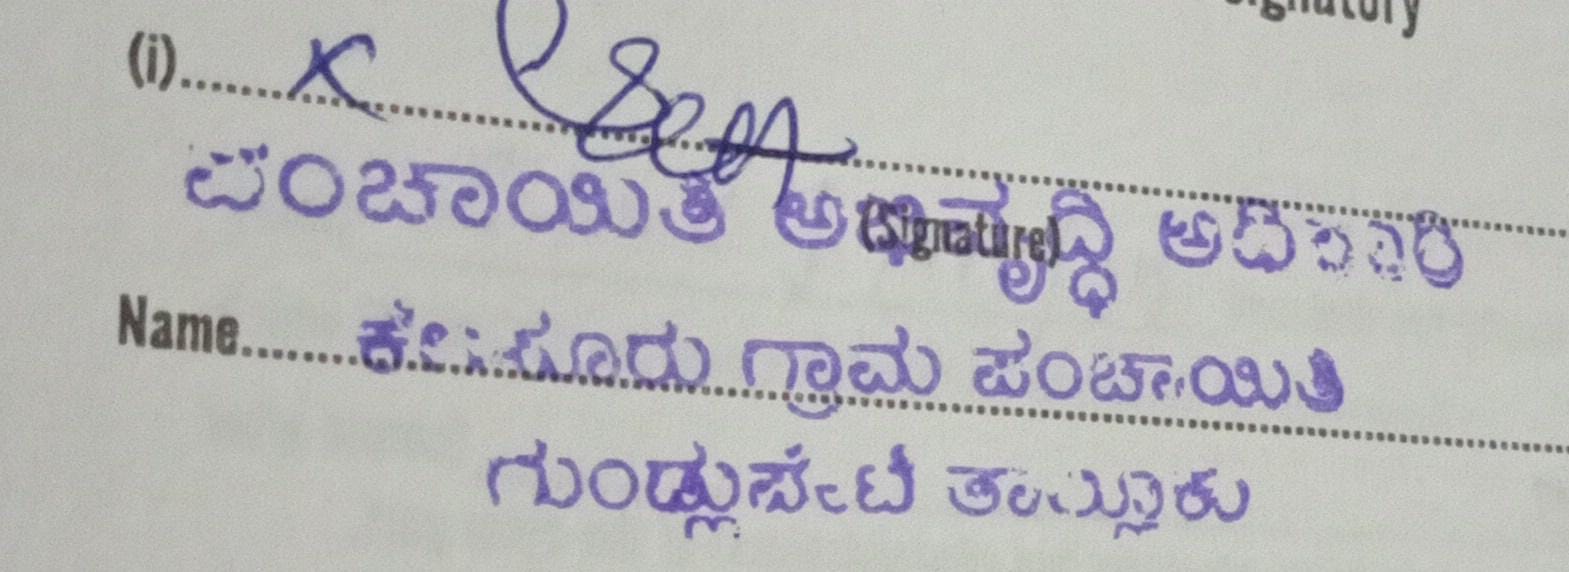 (i)
ಪಂಚಾಯಿತಿ ಅಭಿವೃದ್ಧಿ ಅಧಿಕಾರಿ
(Signature)
Name ಗ್ರಾಮ ಪಂಚಾಯಿತಿ
ಗುಂಡ್ಲುಪೇಟೆ ತಾಲ್ಲೂಕು